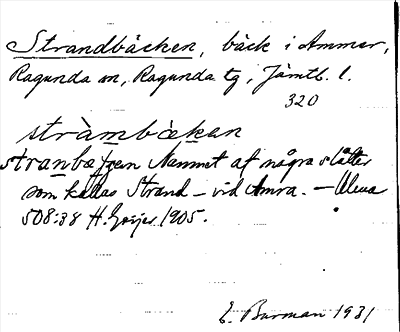 Strandbäcken, bäck i Ammer,
Ragunda sn, Ragunda tg, Jämtl. l.
320
stràmbäkan
stranbæken Namnet af några slåtter
som kallas Strand – vid Amra. –
508:38 H. Geijer 1905.
E. Burman 1931